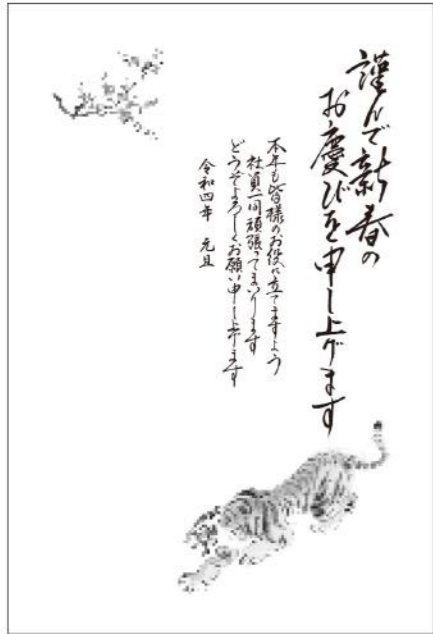 謹んで新春の
お慶びを申し上げます
本年も皆様のお役に立てますよう
社員一同頑張ってまいります
どうぞよろしくお願い申し上げます
令和四年 元旦